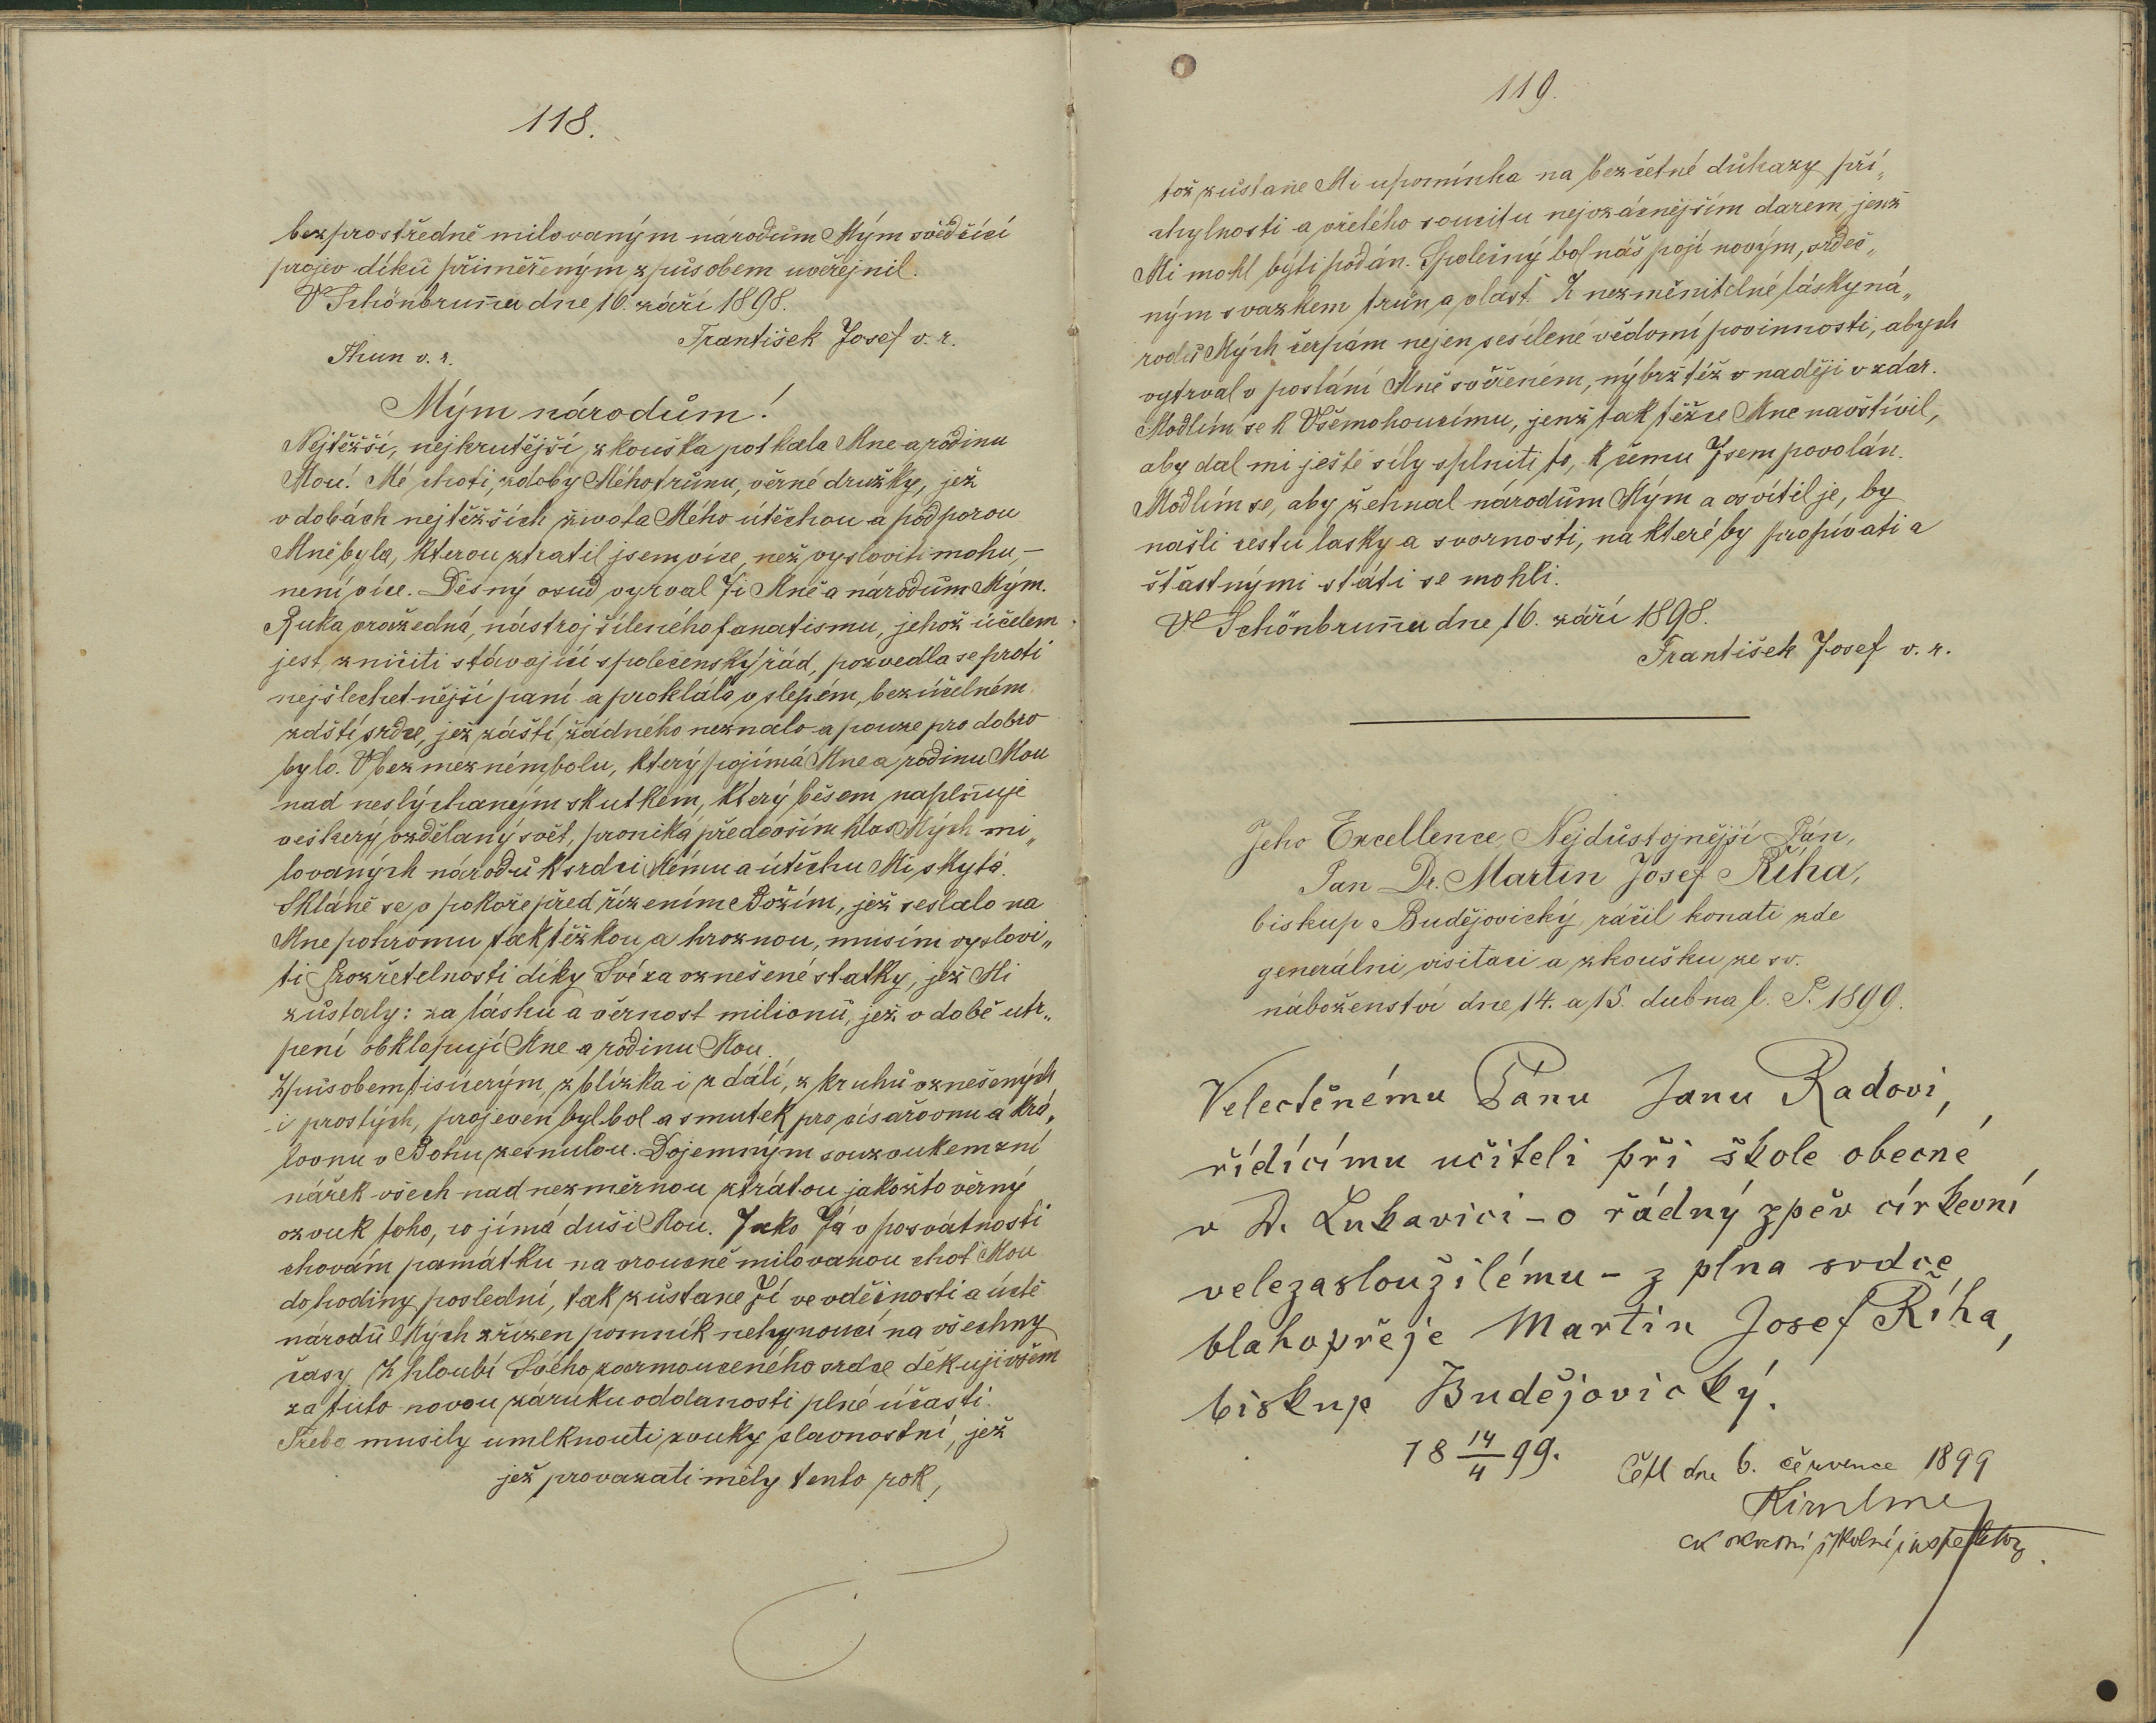 118.
bezprostředně milovaným národům Mým svědčící
projev díků přiměřeným způsobem uveřejnil.
V Schönbrunnu dne 16. září 1898.
František Josef v. r.
Thun v. r.
Mým národům!
Nejtěžší, nejkrutější zkouška potkala Mne a rodinu
Mou! Mé choti, zdoby Mého trůnu, věrné družky, jež
v dobách nejtěžších života Mého útěchou a podporou
Mně byla, kterou ztratil jsem více, než vysloviti mohu, –
není více. Děsný osud vyrval Ji Mně a národům Mým.
Ruka vražedná, nástroj šíleného fanatismu, jehož účelem
jest zničiti stávající společenský řád, pozvedla se proti
nejšlechetnější paní a proklála v slepém, bezúčelném
záští srdce, jež záští žádného neznalo a pouze pro dobro
bylo. V bezmezném bolu, který pojímá Mne a rodinu Mou
nad neslýchaným skutkem, který běsem naplňuje
veškerý vzdělaný svět, proniká především hlas Mých mi„
lovaných národů k srdci Mému a útěchu Mi skytá.
Skláně se v pokoře před řízením Božím, jež seslalo na
Mne pohromu tak těžkou a hroznou, musím vyslovi„
ti Prozřetelnosti díky Své za vznešené statky, jež Mi
zůstaly: za lásku a věrnost milionů, jež v době utr„
pení obklopují Mne a rodinu Mou.
Způsobem tisícerým, z blízka i z dálí, z kruhů vznešených
i prostých, projeven byl bol a smutek pro císařovnu a krá„
lovnu v Bohu zesnulou. Dojemným souzvukem zní
nářek všech nad nezměrnou ztrátou jakožto věrný
ozvuk toho, co jímá duši Mou. Jako Já v posvátnosti
chovám památku na vroucně milovanou choť Mou
do hodiny poslední, tak zůstane Jí ve vděčnosti a úctě
národů Mých zřízen pomník nehynoucí na všechny
časy. Z hloubi Svého zarmouceného srdce děkuji všem
za tuto novou záruku oddanosti plné účasti.
Třeba musily umlknouti zvuky slavnostní, jež
jež provázati měly tento rok,
119.
tož zůstane Mi upomínka na bezčetné důkazy pří„
chylnosti a vřelého soucitu nejvzácnějším darem, jenž
Mi mohl býti podán. Společný bol náš pojí novým, srdeč„
ným svazkem trůn a vlast. Z nezměnitelné lásky ná„
rodů Mých čerpám nejen sesílené vědomí povinnosti, abych
vytrval v poslání Mně svěřeném, nýbrž též v naději v zdar.
Modlím se k Všemohoucímu, jenž tak těžce Mne navštívil,
aby dal mi ještě síly splniti to, k čemu Jsem povolán.
Modlím se, aby žehnal národům Mým a osvítil je, by
našli cestu lásky a svornosti, na které by prospívati a
šťastnými státi se mohli.
V Schönbrunnu dne 16. září 1898.
František Josef v. r.
Jeho Excellence, Nejdůstojnější Pán,
Pan Dr. Martin Josef Říha,
biskup Budějovický ráčil konati zde
generálni visitaci a zkoušku ze sv.
náboženství dne 14. a 15. dubna l. P. 1899.
Velectěnému Pánu Janu Radovi,
řídícímu učiteli při škole obecné
v D. Lukavici – o řádný zpěv církevní
velezasloužilému – z plna srdce
blahopřeje Martin Josef Říha,
biskup Budějovický.
18 14/4 99.
Četl dne 6. července 1899
ck okresní školní inspektor.